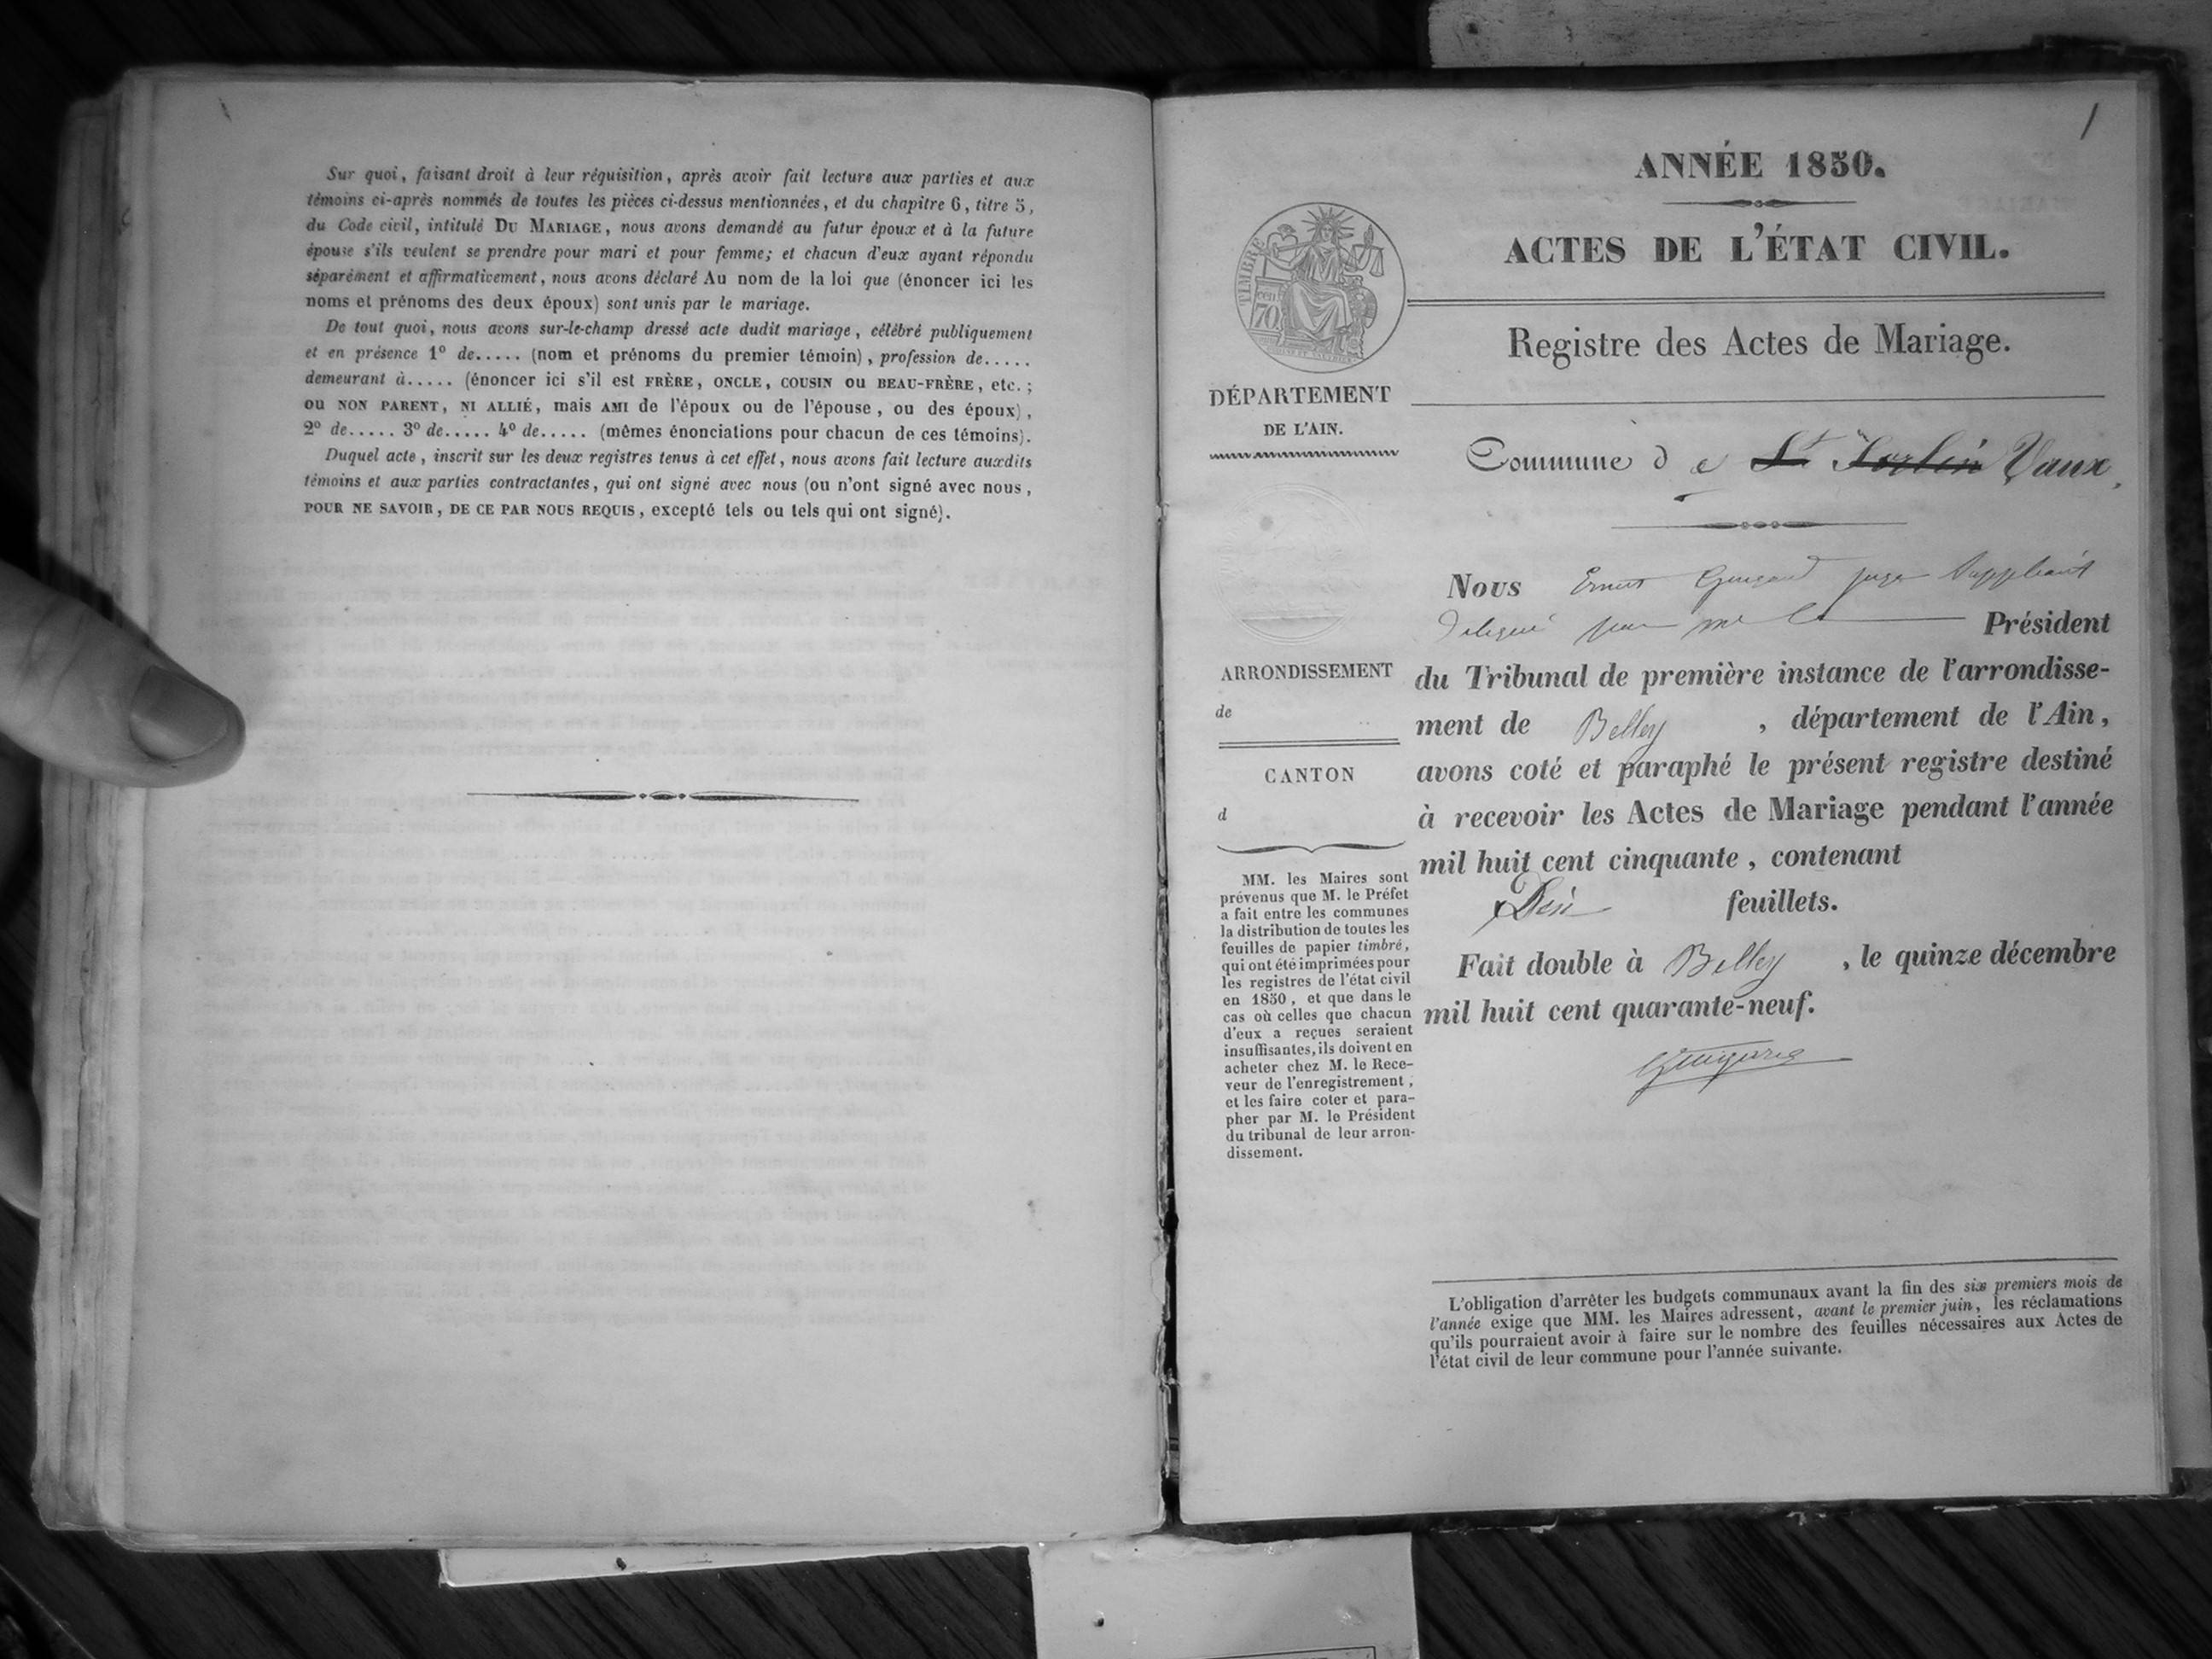 Sur quoi, faisant droit à leur réquisition, après avoir fait lecture aux parties et aux
témoins ci-après nommés de toutes les pièces ci-dessus mentionnées, et du chapitre 6, titre 5,
du Code civil, intitulé DU MARIAGE, nous avons demandé au futur époux et à la future
épouse s'ils veulent se prendre pour mari et pour femme; et chacun d'eux ayant répondu
séparément et affirmativement, nous avons déclaré Au nom de la loi que (énoncer ici les
noms et prénoms des deux époux) sont unis par le mariage.
De tout quoi, nous avons sur-le-champ dressé acte dudit mariage, célébré publiquement
et en présence 1º de..... (nom et prénoms du premier témoin), profession de.....
demeurant à..... (énoncer ici s'il est FRÈRE, ONCLE, COUSIN OU BEAU-FRÈRE, etc.;
ou NON PARENT, NI ALLIÉ, mais AMI de l'époux ou de l'épouse, ou des époux),
2º de..... 3º de..... 4º de..... (mêmes énonciations pour chacun de ces témoins).
Duquel acte, inscrit sur les deux registres tenus à cet effet, nous avons fait lecture auxdits
témoins et aux parties contractantes, qui ont signé avec nous (ou n'ont signé avec nous,
POUR NE SAVOIR, DE CE PAR NOUS REQUIS, excepté tels ou tels qui ont signé).
1
ANNÉE 1850.
ACTES DE L'ÉTAT CIVIL.
Registre des Actes de Mariage.
TIMBRE
cen
70
DÉPARTEMENT
DE L'AIN.
Commune de St Sorlin Vaux
Nous Ernest Guigard juge Suppléant
délégué par mr le Président
du Tribunal de première instance de l'arrondisse-
ment de Belley, département de l'Ain,
avons coté et paraphé le présent registre destiné
à recevoir les Actes de Mariage pendant l'année
mil huit cent cinquante, contenant
Dix feuillets.
Fait double à Belley, le quinze décembre
mil huit cent quarante-neuf.
ARRONDISSEMENT
de
CANTON
d
MM. les Maires sont
prévenus que M. le Préfet
a fait entre les communes
la distribution de toutes les
feuilles de papier timbré,
qui ont été imprimées pour
les registres de l'état civil
en 1850, et que dans le
cas où celles que chacun
d'eux a reçues seraient
insuffisantes, ils doivent en
acheter chez M. le Rece-
veur de l'enregistrement,
et les faire coter et para-
pher par M. le Président
du tribunal de leur arron-
dissement.
L'obligation d'arrêter les budgets communaux avant la fin des six premiers mois de
l'année exige que MM. les Maires adressent, avant le premier juin, les réclamations
qu'ils pourraient avoir à faire sur le nombre des feuilles nécessaires aux Actes de
l'état civil de leur commune pour l'année suivante.